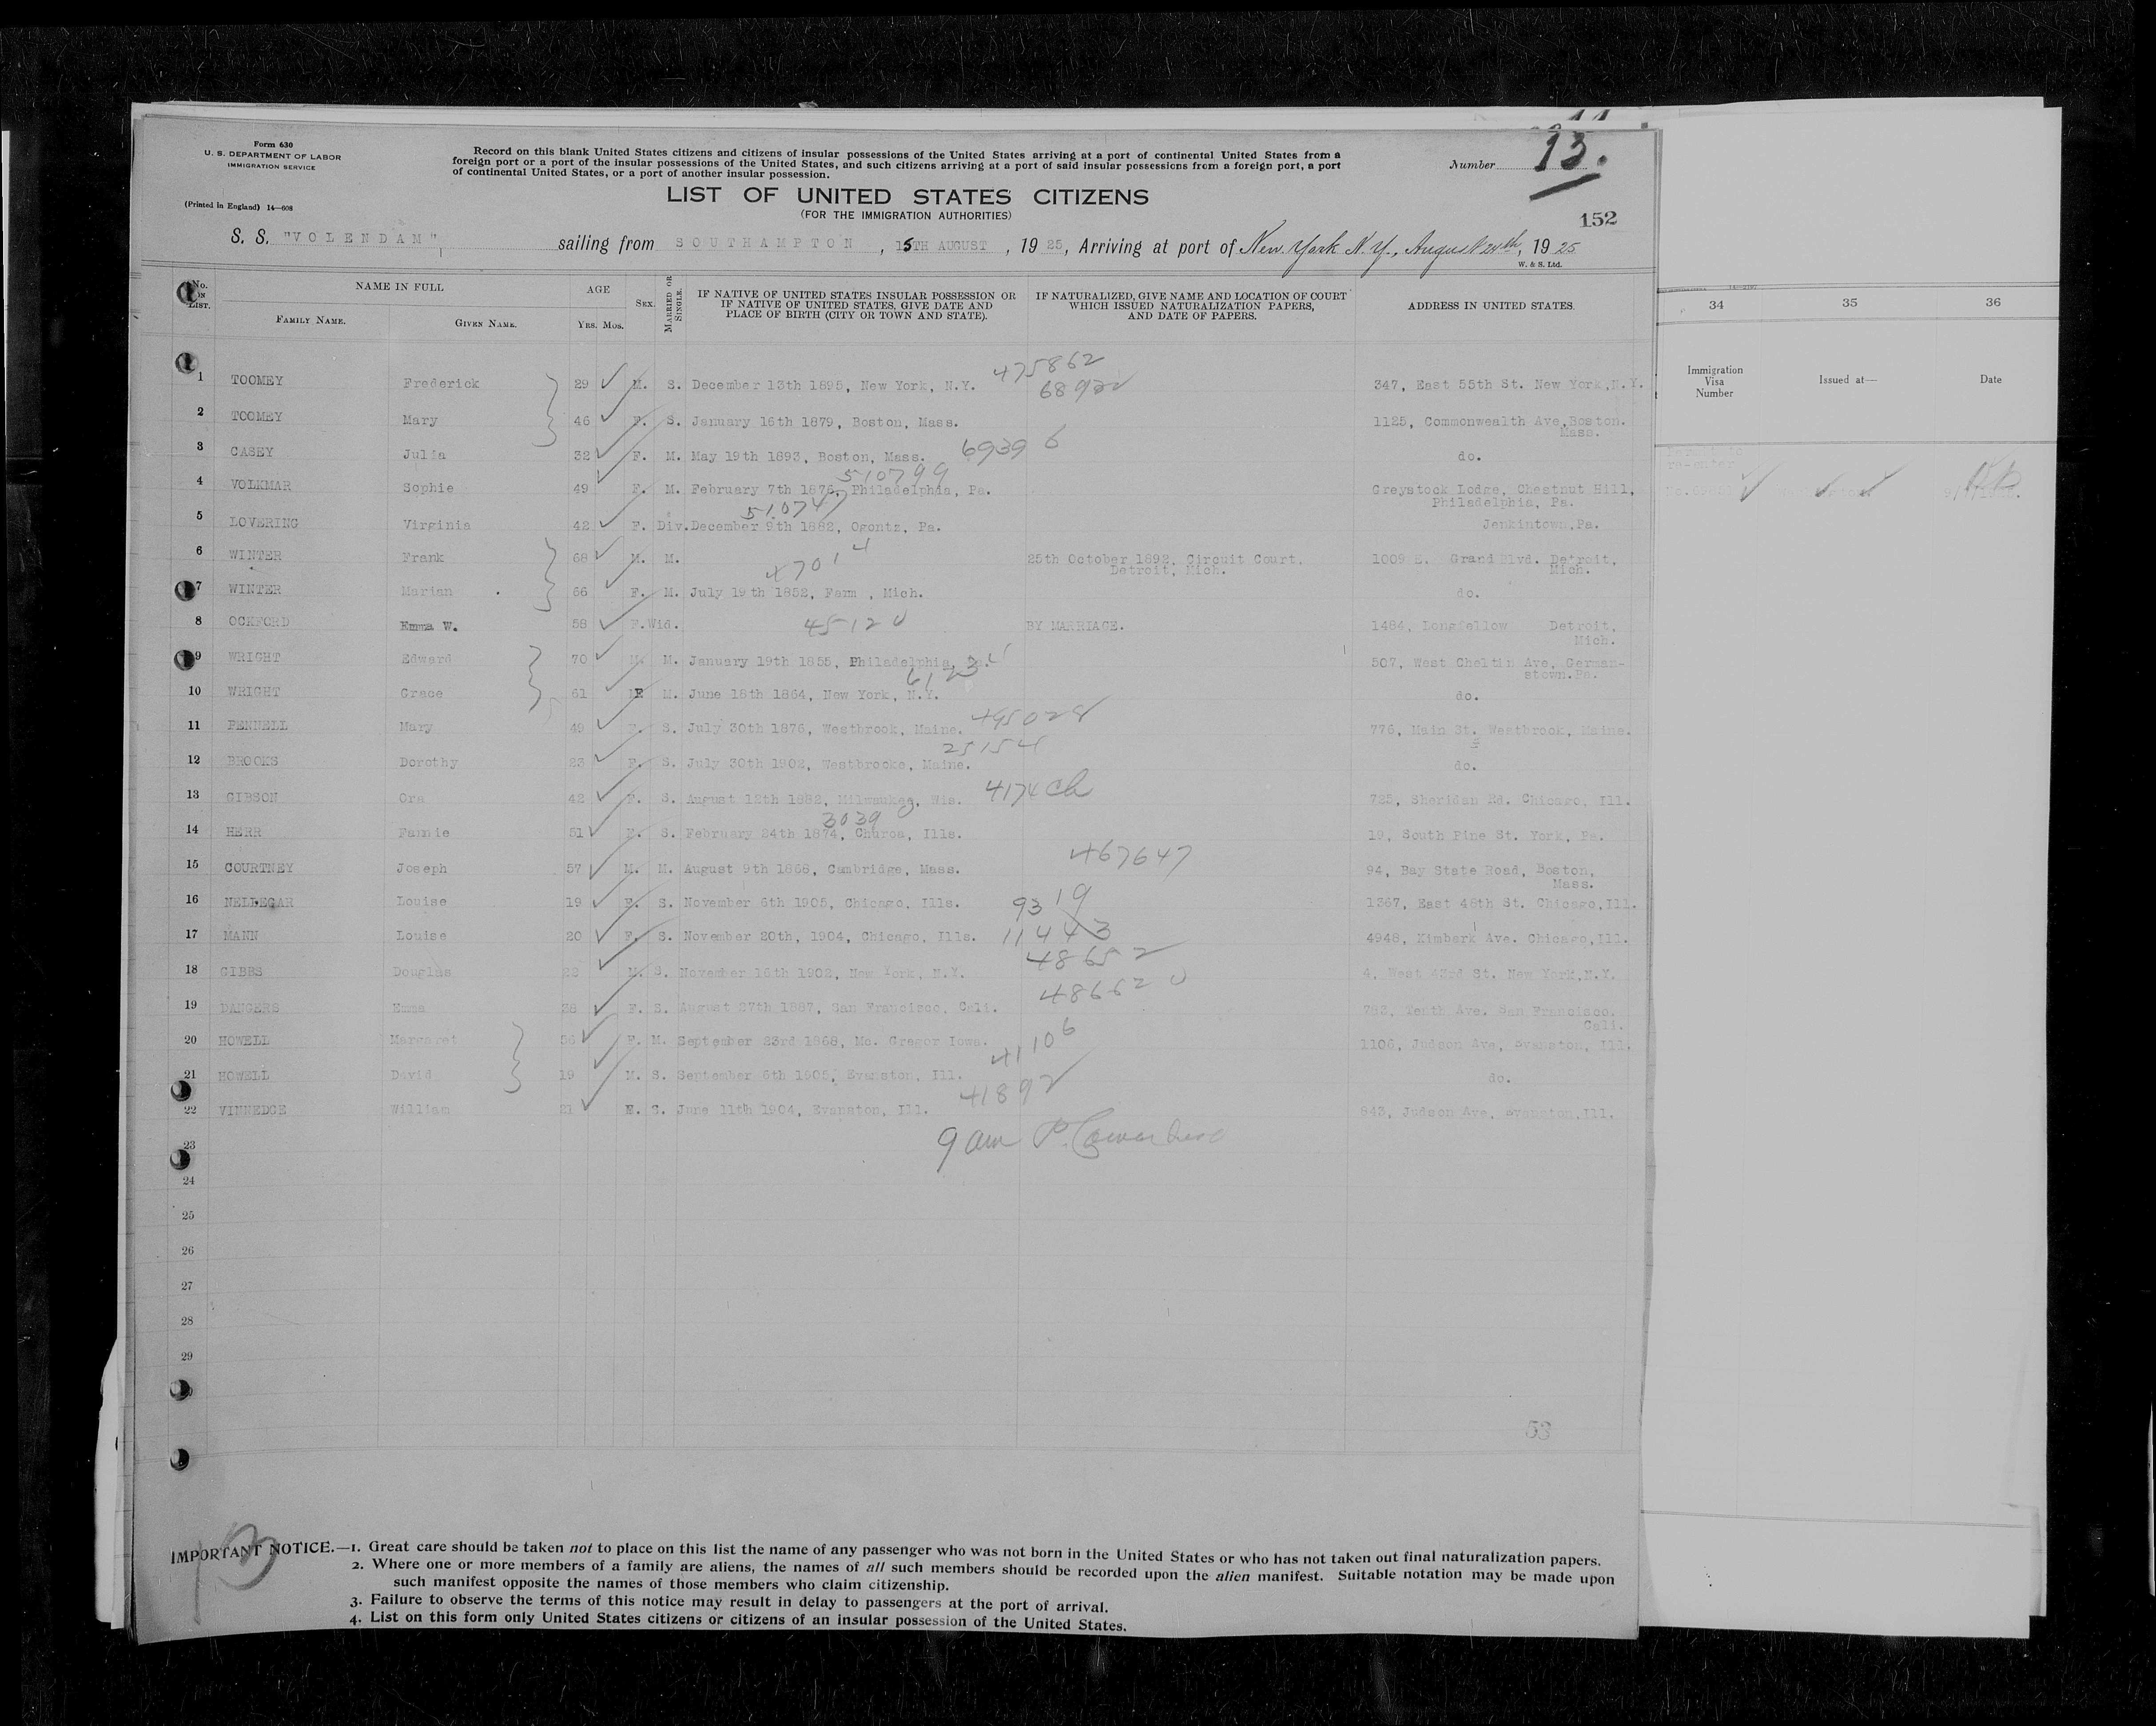 Form 630
U. S. DEPARTMENT OF LABOR
IMMIGRATION SERVICE
(Printed in England) 14—608
Record on this blank United States citizens and citizens of insular possessions of the United States arriving at a port of continental United States from a
foreign port or a port of the insular possessions of the United States, and such citizens arriving at a port of said insular possessions from a foreign port, a port
of continental United States, or a port of another insular possession.
Number 13.
LIST OF UNITED STATES CITIZENS
(FOR THE IMMIGRATION AUTHORITIES)
152
S. S. "VOLENDAM", sailing from SOUTHAMPTON, 15TH AUGUST, 1925, Arriving at port of New York N.Y., August 24th, 1925
W. & S. Ltd.
No. ON LIST. NAME IN FULL AGE SEX. MARRIED OR SINGLE. IF NATIVE OF UNITED STATES INSULAR POSSESSION OR IF NATIVE OF UNITED STATES, GIVE DATE AND PLACE OF BIRTH (CITY OR TOWN AND STATE). IF NATURALIZED, GIVE NAME AND LOCATION OF COURT WHICH ISSUED NATURALIZATION PAPERS, AND DATE OF PAPERS. ADDRESS IN UNITED STATES.
FAMILY NAME. GIVEN NAME. YRS. MOS.
34 35 36
Immigration Visa Number Issued at— Date
475862
1 TOOMEY Frederick 29 M. S. December 13th 1895, New York, N.Y. 347, East 55th St. New York, N.Y.
2 TOOMEY Mary 46 F. S. January 16th 1879, Boston, Mass. 1125, Commonwealth Ave, Boston. Mass.
3 CASEY Julia 32 F. M. May 19th 1893, Boston, Mass. 69396 do.
510799
4 VOLKMAR Sophie 49 F. M. February 7th 1876, Philadelphia, Pa. Greystock Lodge, Chestnut Hill, Philadelphia, Pa.
510747
5 LOVERING Virginia 42 F. Div. December 9th 1882, Ogontz, Pa. Jenkintown, Pa.
6 WINTER Frank 68 M. M. 25th October 1892, Circuit Court, Detroit, Mich. 1009 E. Grand Blvd. Detroit, Mich.
47014
7 WINTER Marian 66 F. M. July 19th 1852, Farm , Mich. do.
8 OCKFORD Emma W. 58 F. Wid. 45120 BY MARRIAGE. 1484, Longfellow Detroit, Mich.
9 WRIGHT Edward 70 M. M. January 19th 1855, Philadelphia, 507, West Cheltin Ave, Germanstown. Pa.
6123
10 WRIGHT Grace 61 F M. June 18th 1864, New York, N.Y. do.
11 PENNELL Mary 49 F. S. July 30th 1876, Westbrook, Maine. 495028 776, Main St. Westbrook, Maine.
25154
12 BROOKS Dorothy 23 F. S. July 30th 1902, Westbrooke, Maine. do.
13 GIBSON Ora 42 F. S. August 12th 1882, Milwaukee, Wis. 4174 Ch 725, Sheridan Rd. Chicago, Ill.
3039
14 HERR Fannie 51 F. S. February 24th 1874, Churoa, Ills. 19, South Pine St. York, Pa.
15 COURTNEY Joseph 57 M. M. August 9th 1868, Cambridge, Mass. 467647 94, Bay State Road, Boston, Mass.
16 NELLEGAR Louise 19 F. S. November 6th 1905, Chicago, Ills. 9319 1367, East 48th St. Chicago, Ill.
17 MANN Louise 20 F. S. November 20th, 1904, Chicago, Ills. 11443 4948, Kimbark Ave. Chicago, Ill.
18 GIBBS Douglas 22 M. S. November 16th 1902, New York, N.Y. 48652 4, West 43rd St. New York, N.Y.
19 DANGERS Emma 38 F. S. August 27th 1887, San Francisco, Cali. 486620 783, Tenth Ave. San Francisco. Cali.
20 HOWELL Margaret 56 F. M. September 23rd 1868, Mc. Gregor Iowa. 41106 1106, Judson Ave, Evanston, Ill.
21 HOWELL David 19 M. S. September 6th 1905, Evanston, Ill. do.
41892
22 VINNEDGE William 21 M. S. June 11th 1904, Evanston, Ill. 843, Judson Ave, Evanston, Ill.
23 9 am
24
25
26
27
28
29
53
IMPORTANT NOTICE.—1. Great care should be taken not to place on this list the name of any passenger who was not born in the United States or who has not taken out final naturalization papers.
2. Where one or more members of a family are aliens, the names of all such members should be recorded upon the alien manifest. Suitable notation may be made upon
such manifest opposite the names of those members who claim citizenship.
3. Failure to observe the terms of this notice may result in delay to passengers at the port of arrival.
4. List on this form only United States citizens or citizens of an insular possession of the United States.
13